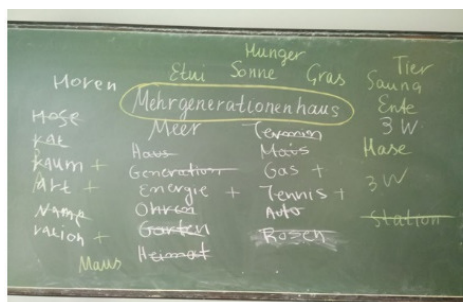 Hunger
Etui Sonne Gras Tier
Horen Sauna
Mehrgenerationenhaus Ente
Hose Meer Termin 3 W.
Rat Haus Mais Hase
Raum + Generation Gas + 3 W
Art + Energie + Tennis +
Name Ohren Auto Station
ration + Garten Rosen
Maus Heimat